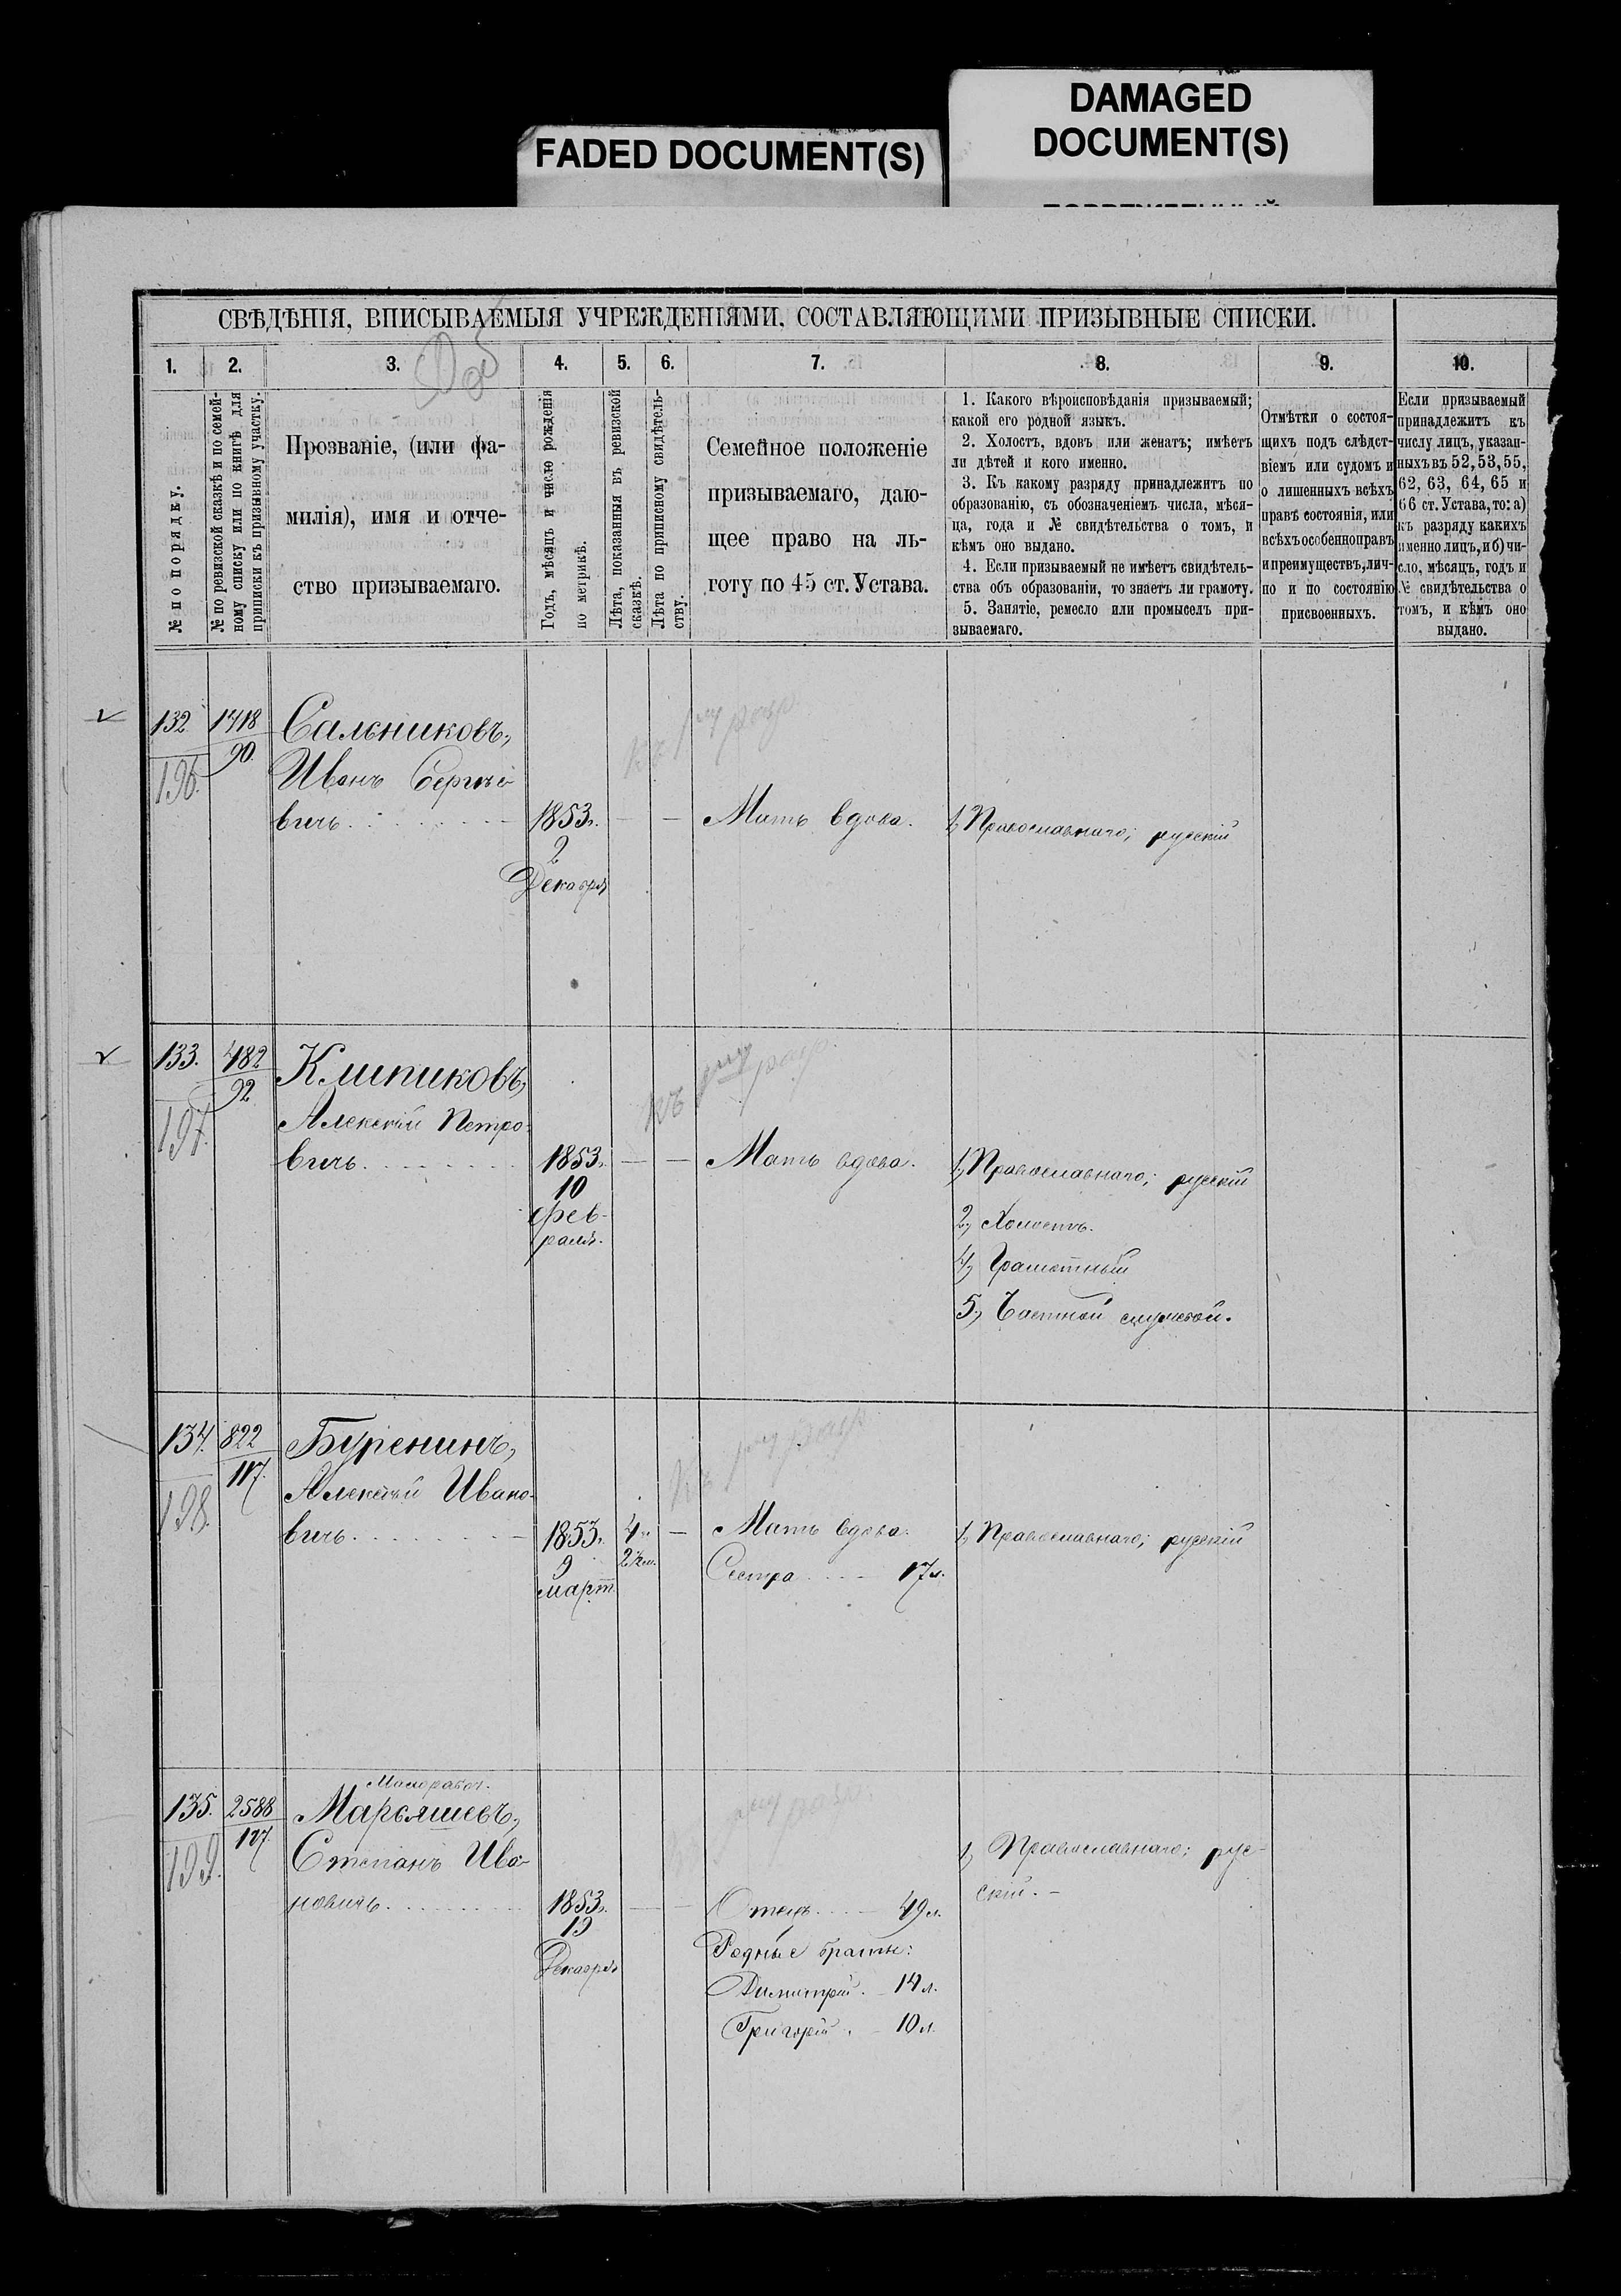 DAMAGED
DOCUMENT(S)
FADED DOCUMENT(S)
СВѢДѢНІЯ, ВПИСЫВАЕМЫЯ УЧРЕЖДЕНІЯМИ, СОСТАВЛЯЮЩИМИ ПРИЗЫВНЫЕ СПИСКИ.
1. 2. 3. 4. 5. 6. 7. 8. 9. 10.
№ по порядку.
№ по ревизской сказкѣ и по семей-
ному списку или по книгѣ для
приписки къ призывному участку.
Прозваніе, (или фа-
милія), имя и отче-
ство призываемаго.
Годъ, мѣсяцъ и число рожденія
по метрикѣ.
Лѣта, показанныя въ ревизской
сказкѣ.
Лѣта по приписному свидѣтель-
ству.
Семейное положеніе
призываемаго, даю-
щее право на ль-
готу по 45 ст. Устава.
1. Какого вѣроисповѣданія призываемый;
какой его родной языкъ.
2. Холостъ, вдовъ или женатъ; имѣетъ
ли дѣтей и кого именно.
3. Къ какому разряду принадлежитъ по
образованію, съ обозначеніемъ числа, мѣся-
ца, года и № свидѣтельства о томъ, и
кѣмъ оно выдано.
4. Если призываемый не имѣетъ свидѣтель-
ства объ образованіи, то знаетъ ли грамоту.
5. Занятіе, ремесло или промыселъ при-
зываемаго.
Отмѣтки о состоя-
щихъ подъ слѣдст-
віемъ или судомъ и
о лишенныхъ всѣхъ
правъ состоянія, или
всѣхъ особенно правъ
и преимуществъ, лич-
но и по состоянію
присвоенныхъ.
Если призываемый
принадлежитъ къ
числу лицъ, указан-
ныхъ въ 52, 53, 55,
62, 63, 64, 65 и
66 ст. Устава, то: а)
къ разряду какихъ
именно лицъ, и б) чи-
сло, мѣсяцъ, годъ и
№ свидѣтельства о
томъ, и кѣмъ оно
выдано.
132 1718
90.
196.
Сальниковъ,
Иванъ Сергѣе-
вичъ
1853г.
2
Декабря
Мать вдова.
1, Православнаго; русскій
133. 482
92
197.
Клипиковъ,
Алексѣй Петро-
вичъ
1853г.
10
Фев-
раля.
Мать вдова.
1, Православнаго; русскій
2, Холостъ.
4, Грамотный
5, Частной службой.
134. 822
117.
198.
Буренинъ,
Алексѣй Ивано-
вичъ
1853г.
9
март
Мать вдова.
Сестра 17л.
1, Православнаго; русскій
135. 2588
127.
199.
Марьяшевъ,
Степанъ Ива-
новичъ
1853г.
19
Декабря
Отецъ 49л.
Родные братья:
Димитрій. 14л.
Григорій. 10л.
1, Православнаго; рус-
скій.